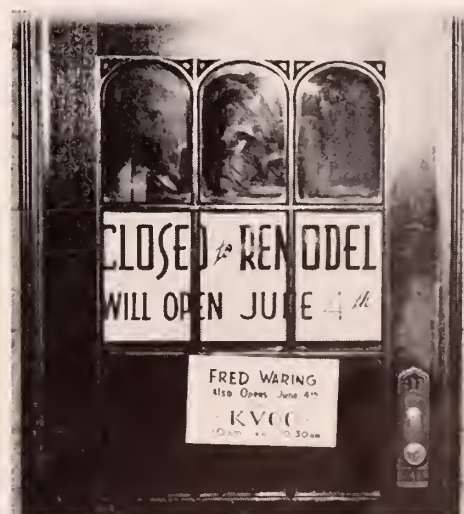 CLOSED to REMODEL
WILL OPEN JUNE 4th
FRED WARING
Also Opens June 4th
KVOO
10am to 10:30am